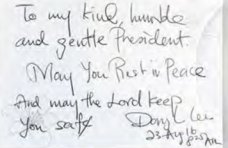 To my kind, humble
and gentle President.
May You Rest in Peace
And may the Lord keep
You safe
Lee
23 Aug 16